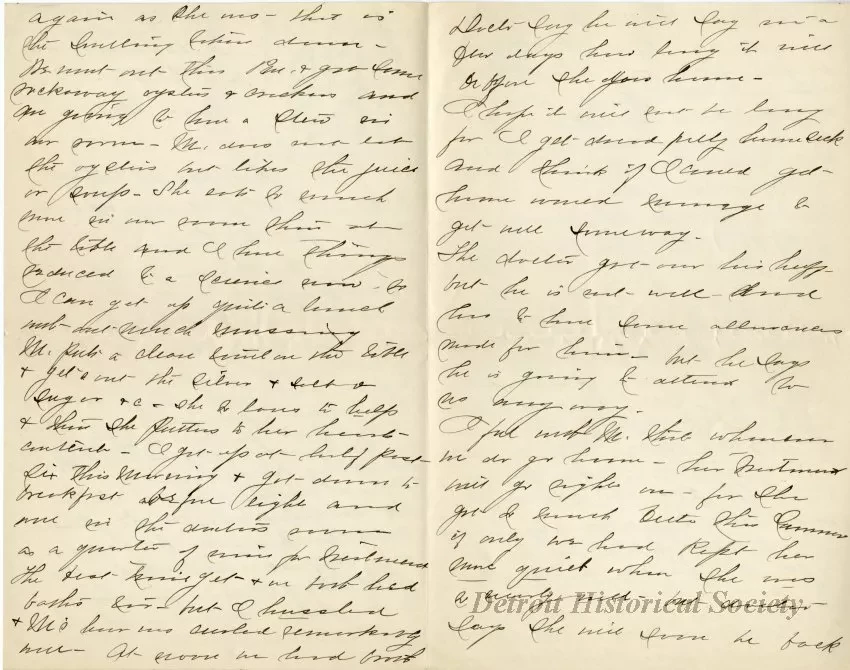 again as she was - that is
the swelling before dinner -
We went out this P.M. & got some
rockaway oysters & crackers and
are going to have a stew in
our room - M. does not eat
the oysters but likes the juice
or soup - She eats so much
more in our room than at
the table and I have things
reduced to a science now - so
I can get up quite a lunch
with out much mussing
M. puts a clean towel on the table
& gets out the silver & salt &
sugar &c - she so loves to help
& then she putters to her hearts
content - I got up at half past
six this morning & got down to
breakfast before eight and
was in the doctors room
as a quarter of nine for treatment
The best time yet & we both had
baths too - but I hustled
& M's hair was curled
well - At noon we had both
Doctor say he will say in a
few days how long it will
before she goes home -
I hope it will not be long
for I get dread ful ly homesick
and think if I could get
home would manage to
get well some way.
The doctor got over his huff -
but he is not well - and
has to have some allowances
made for him - but he says
he is going to attend to
us any way.
I feel with M. that whenever
we do go home - her treatment
will go right on - for she
got so much better this summer
if only we had kept her
more quiet when she was
a
says she will soon be back
Detroit Historical Society